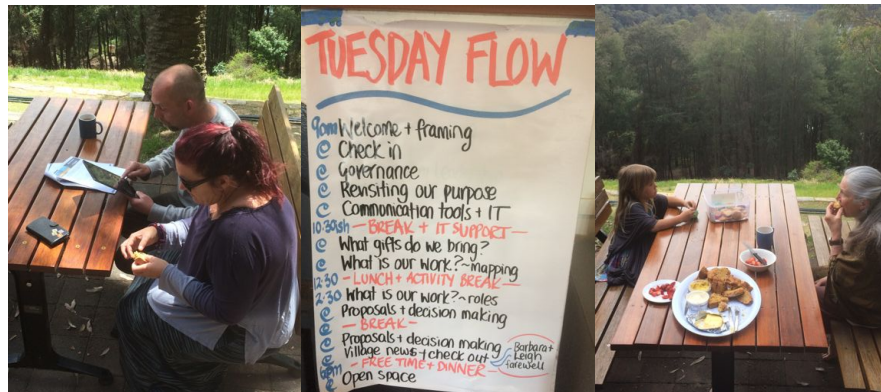 TUESDAY FLOW
9am Welcome + framing
Check in
Governance
Revisiting our purpose
Communication tools + IT
10:30ish - BREAK + IT SUPPORT -
What gifts do we bring?
What is our work? ~ mapping
12:30 - LUNCH + ACTIVITY BREAK -
2:30 What is our work? ~ roles
Proposals + decision making
- BREAK -
Proposals + decision making
Village news + check out
Barbara +
Leigh
farewell
- FREE TIME + DINNER -
Open space